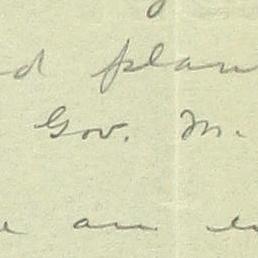 d plan
Gov. M.
e an